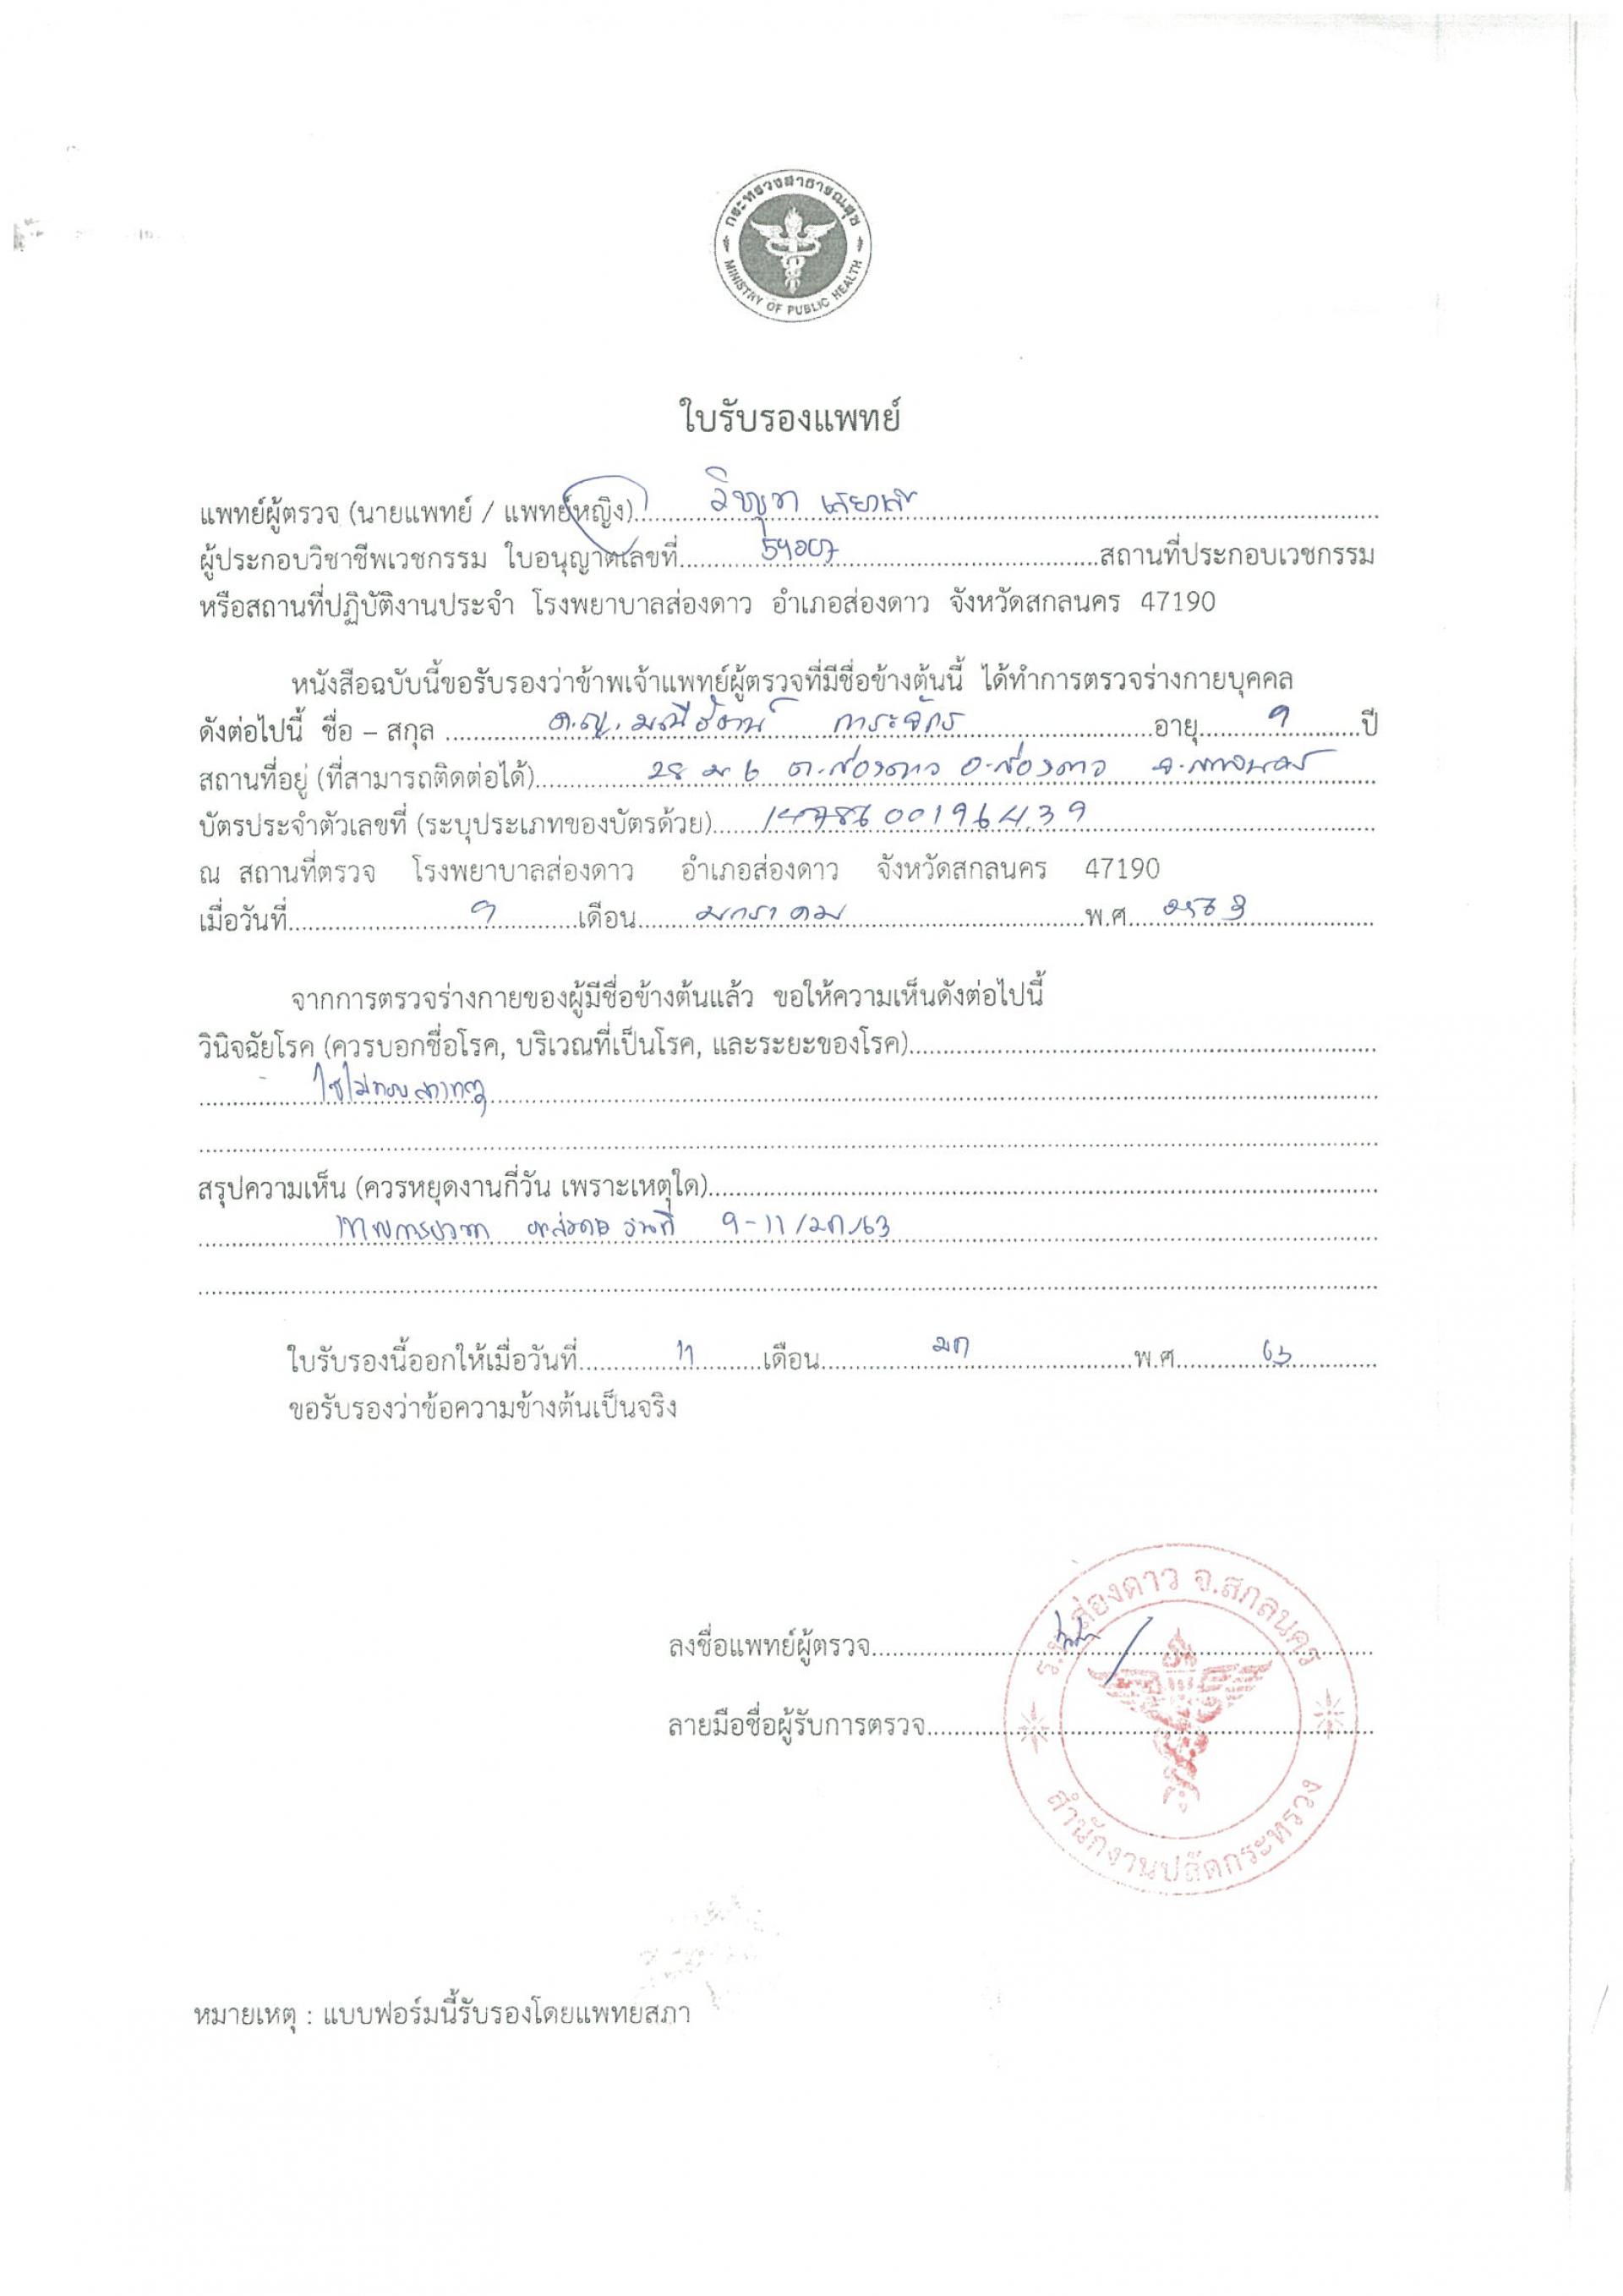 กระทรวงสาธารณสุข
MINISTRY OF PUBLIC HEALTH
ใบรับรองแพทย์
แพทย์ผู้ตรวจ (นายแพทย์ / แพทย์หญิง)
ผู้ประกอบวิชาชีพเวชกรรม ใบอนุญาตเลขที่ สถานที่ประกอบเวชกรรม
หรือสถานที่ปฏิบัติงานประจำ โรงพยาบาลส่องดาว อำเภอส่องดาว จังหวัดสกลนคร 47190
หนังสือฉบับนี้ขอรับรองว่าข้าพเจ้าแพทย์ผู้ตรวจที่มีชื่อข้างต้นนี้ ได้ทำการตรวจร่างกายบุคคล
ดังต่อไปนี้ ชื่อ – สกุล ด.ญ. อายุ 9 ปี
สถานที่อยู่ (ที่สามารถติดต่อได้) 28 ม 6 ต.ส่องดาว อ.ส่องดาว จ.สกลนคร
บัตรประจำตัวเลขที่ (ระบุประเภทของบัตรด้วย)
ณ สถานที่ตรวจ โรงพยาบาลส่องดาว อำเภอส่องดาว จังหวัดสกลนคร 47190
เมื่อวันที่ 9 เดือน มกราคม พ.ศ. 2563
จากการตรวจร่างกายของผู้มีชื่อข้างต้นแล้ว ขอให้ความเห็นดังต่อไปนี้
วินิจฉัยโรค (ควรบอกชื่อโรค, บริเวณที่เป็นโรค, และระยะของโรค)
ไข้ไม่ทราบสาเหตุ
สรุปความเห็น (ควรหยุดงานกี่วัน เพราะเหตุใด)
วันที่ 9-11/มค/63
ใบรับรองนี้ออกให้เมื่อวันที่ 11 เดือน มค พ.ศ. 63
ขอรับรองว่าข้อความข้างต้นเป็นจริง
ลงชื่อแพทย์ผู้ตรวจ
ลายมือชื่อผู้รับการตรวจ
ร.พ.ส่องดาว จ.สกลนคร
สำนักงานปลัดกระทรวง
หมายเหตุ : แบบฟอร์มนี้รับรองโดยแพทยสภา